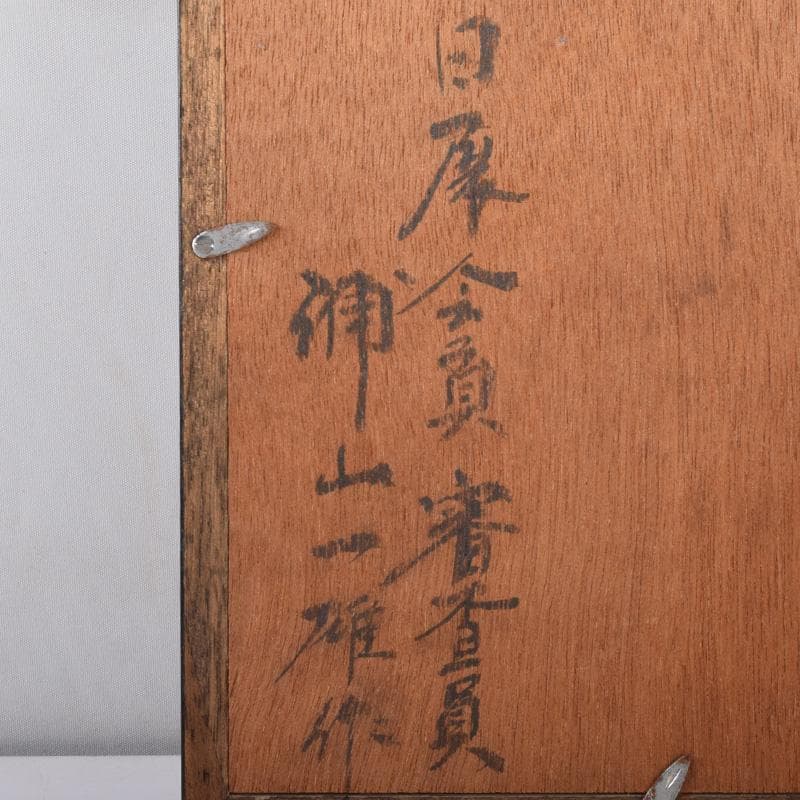 日展会員審査員
浦山一雄作